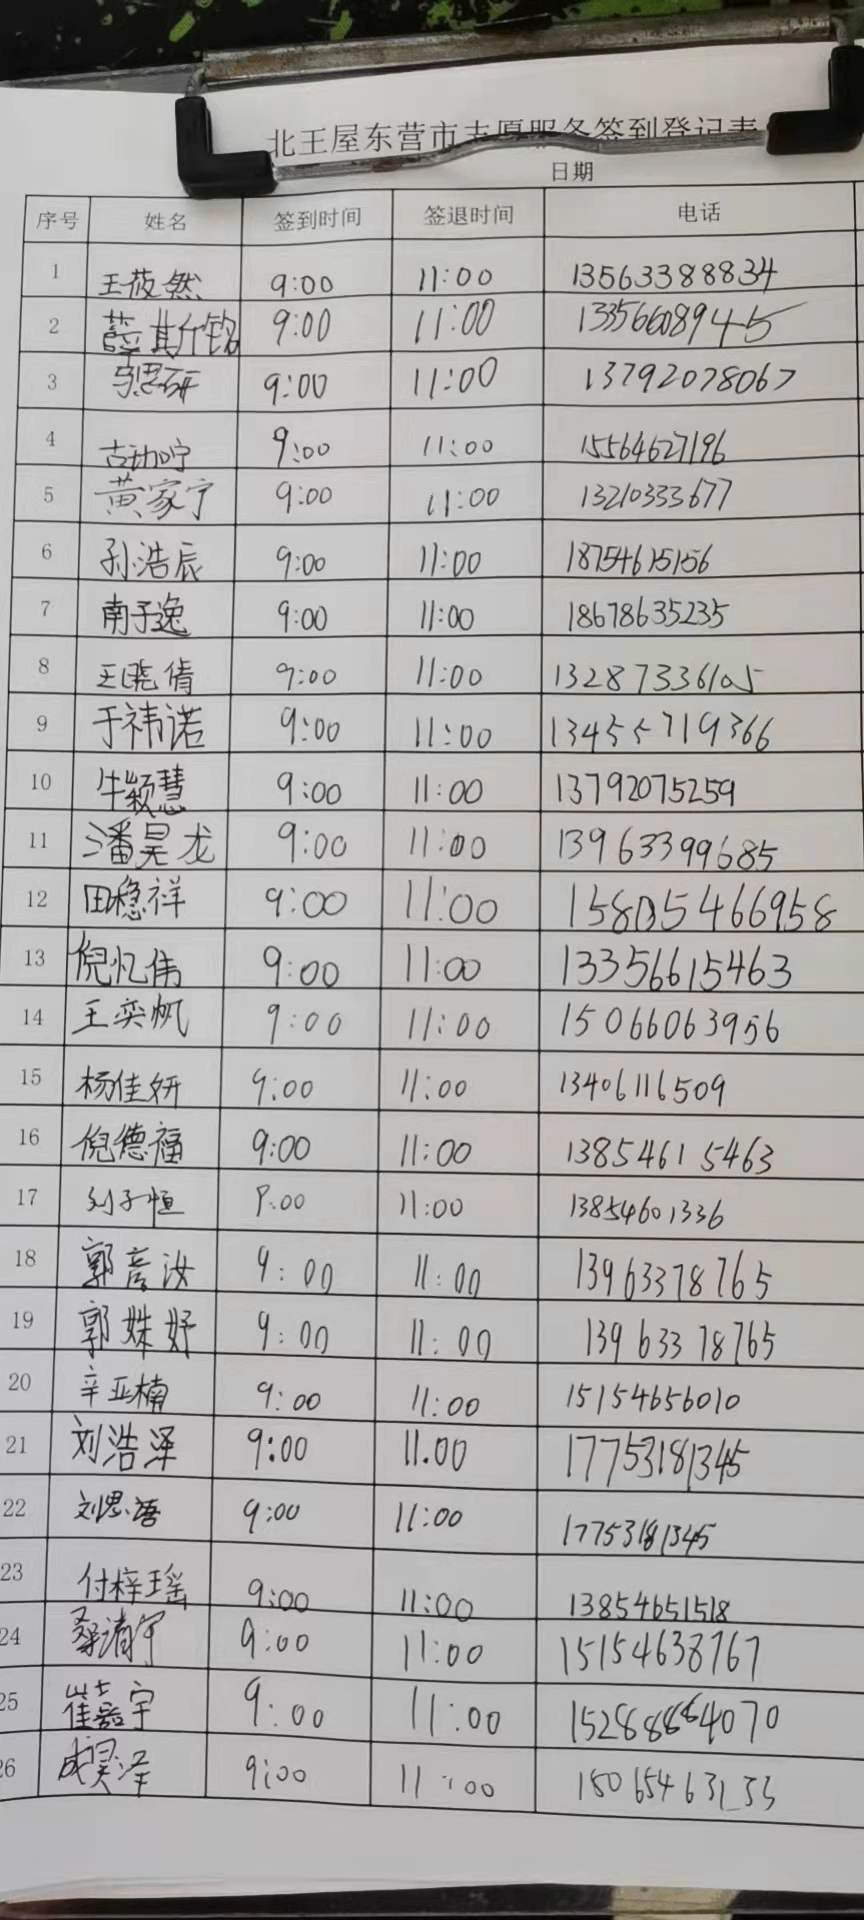 北王屋东营市志愿服务签到登记表
日期
序号 姓名 签到时间 签退时间 电话
1 王莜然 9:00 11:00 13563388834
2 9:00 11:00 13356608945
3 马思研 9:00 11:00 13792078067
4 9:00 11:00 15564627196
5 黄家宁 9:00 11:00 13210333677
6 孙浩辰 9:00 11:00 18754615156
7 南子逸 9:00 11:00 18678635235
8 王晓倩 9:00 11:00 13287336105
9 于祎诺 9:00 11:00 13455719366
10 牛颖慧 9:00 11:00 13792075259
11 潘昊龙 9:00 11:00 13963399685
12 田稳祥 9:00 11:00
13 倪忆伟 9:00 11:00 13356615463
14 王奕帆 9:00 11:00 15066063956
15 杨佳妍 9:00 11:00 13406116509
16 倪德福 9:00 11:00 13854615463
17 刘子恒 9.00 11:00 13854601336
18 郭彦汝 9:00 11:00 13963378765
19 郭姝妤 9:00 11:00 13963378765
20 辛亚楠 9:00 11:00 15154656010
21 刘浩泽 9:00 11.00 17753181345
22 刘思语 9:00 11:00 17753181345
23 付梓瑶 9:00 11:00 13854651518
24 桑清宇 9:00 11:00 15154638767
25 崔嘉宇 9:00 11:00 15288884070
26 成昊泽 9:00 11:00